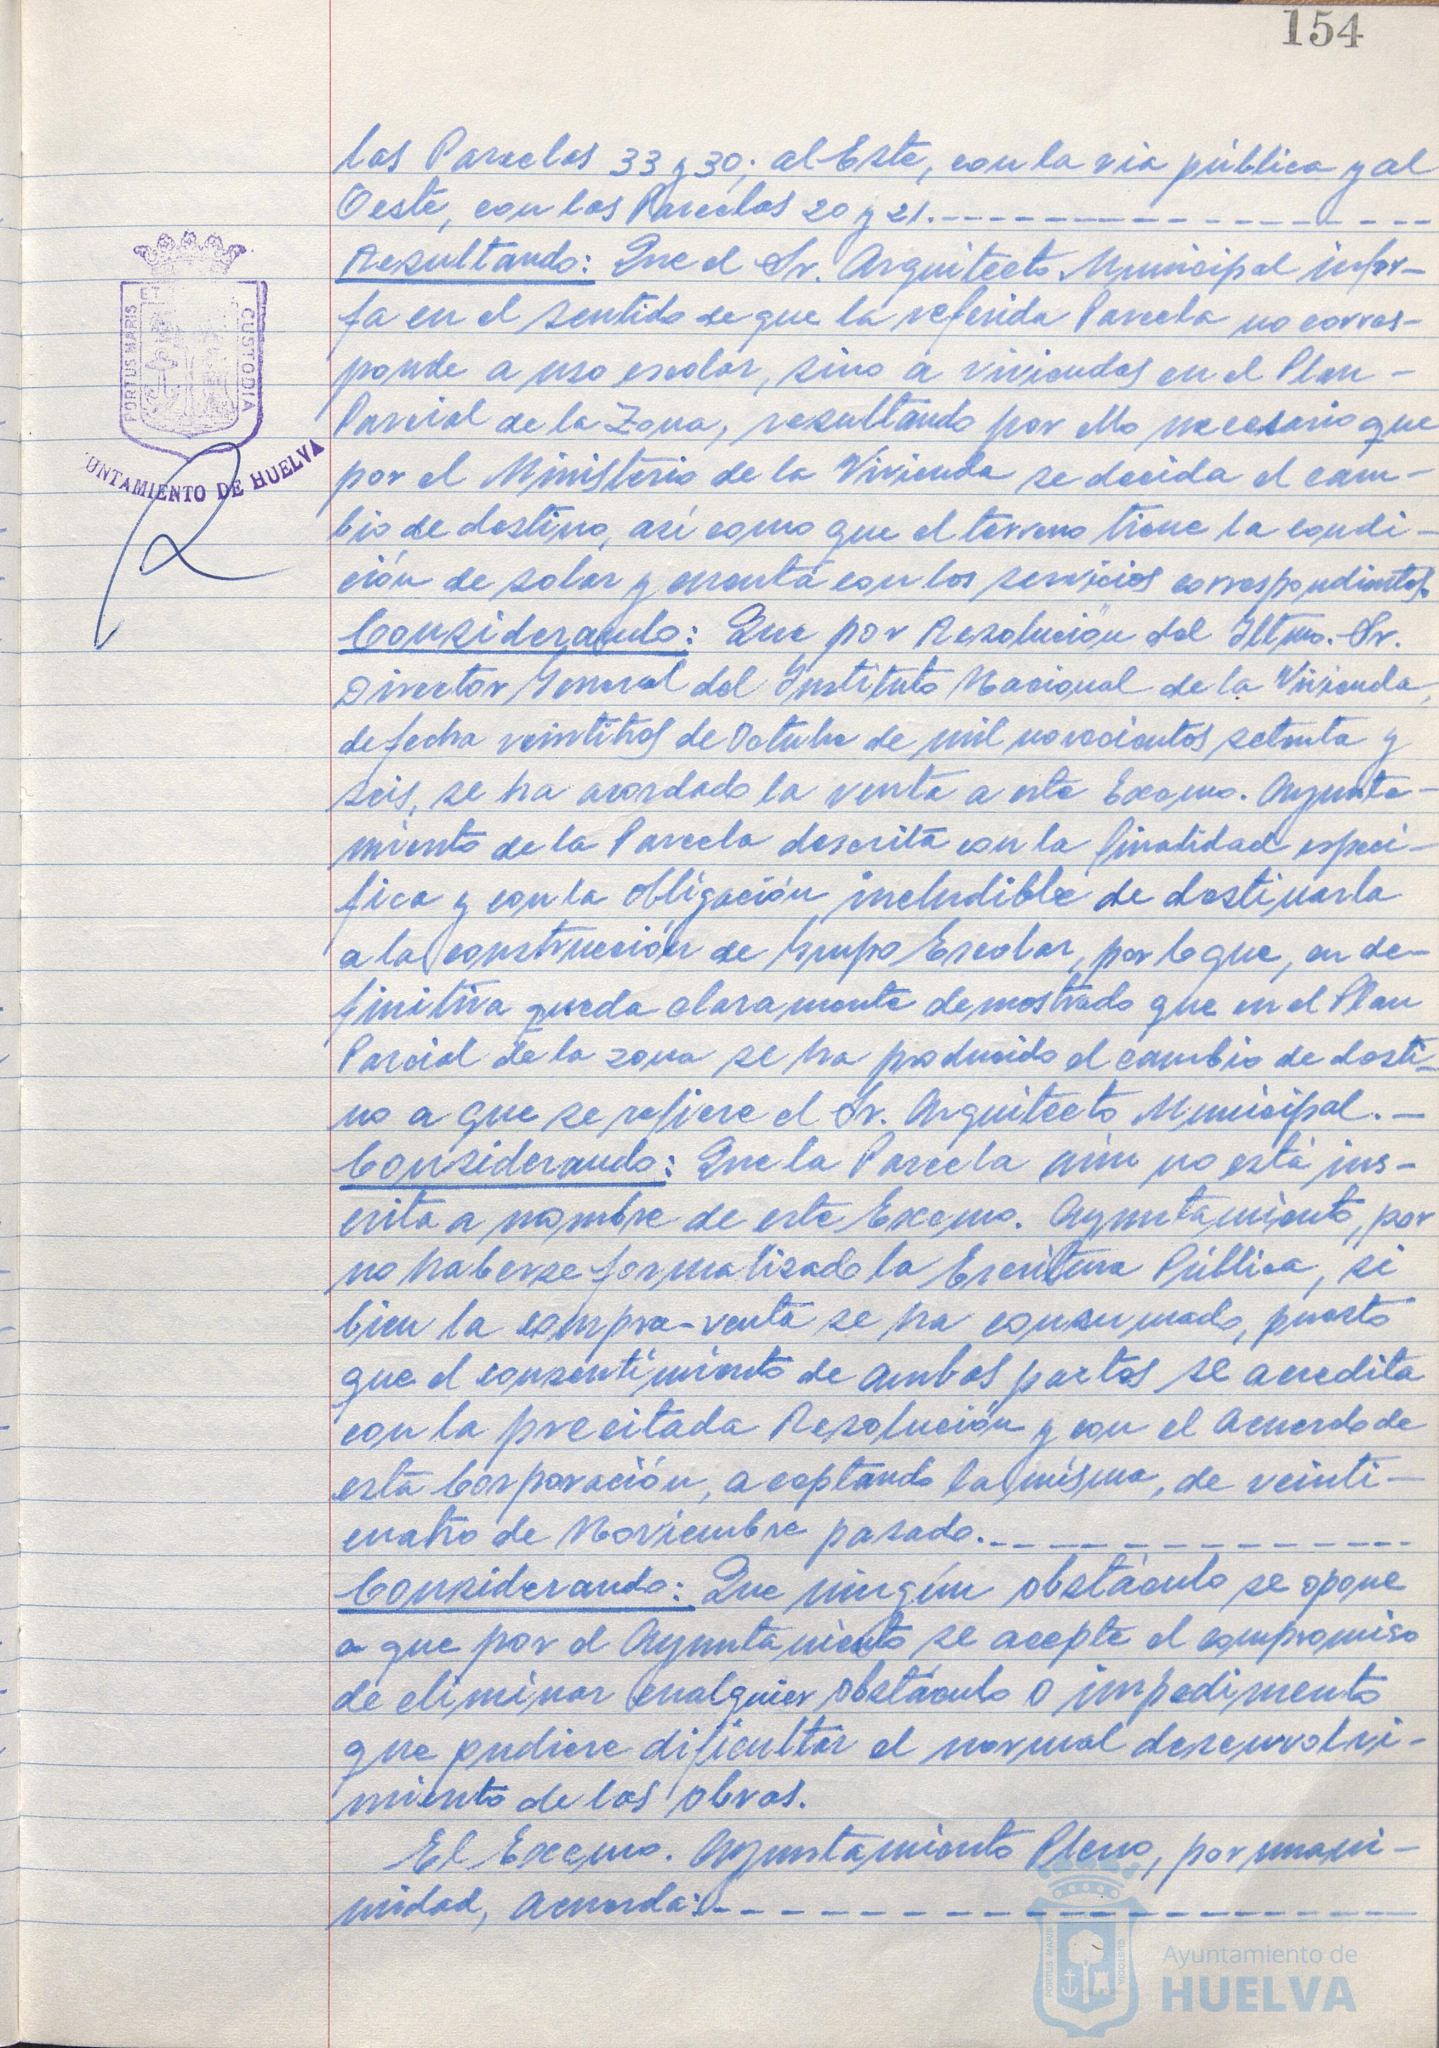 154
las Parcelas 33 y 30; al Este, con la via pública y al
Oeste, con las Parcelas 20 y 21.
Resultando: Que el Sr. Arquitecto Municipal infor-
ma en el sentido de que la referida Parcela no corres-
ponde a uso escolar, sino a viviendas en el Plan
Parcial de la Zona, resultando por ello necesario que
por el Ministerio de la Vivienda se decida el cam-
bio de destino, así como que el terreno tiene la condi-
ción de solar y cuenta con los servicios correspondientes.
Considerando: Que por Resolución del Iltmo. Sr.
Director General del Instituto Nacional de la Vivienda,
de fecha veintitres de Octubre de mil novecientos setenta y
seis, se ha acordado la venta a este Excmo. Ayunta-
miento de la Parcela descrita con la finalidad especi-
fica y con la obligación ineludible de destinarla
a la construcción de Grupo Escolar, por lo que, en de-
finitiva queda claramente demostrado que en el Plan
Parcial de la zona se ha producido el cambio de desti-
no a que se refiere el Sr. Arquitecto Municipal.
Considerando: Que la Parcela aún no está ins-
crita a nombre de este Excmo. Ayuntamiento, por
no haberse formalizado la Escritura Pública, si
bien la compra-venta se ha consumado, puesto
que el consentimiento de ambas partes se acredita
con la precitada Resolución y con el Acuerdo de
esta Corporación, aceptando la misma, de veinti-
cuatro de Noviembre pasado.
Considerando: Que ningún obstáculo se opone
a que por el Ayuntamiento se acepte el compromiso
de eliminar cualquier obstáculo o impedimento
que pudiere dificultar el normal desenvolvi-
miento de las obras.
El Excmo. Ayuntamiento Pleno, por unani-
midad, acuerda:
PORTUS MARIS CUSTODIA
UNTAMIENTO DE HUELVA
PORTUS MARIS CUSTODIA
Ayuntamiento de
HUELVA